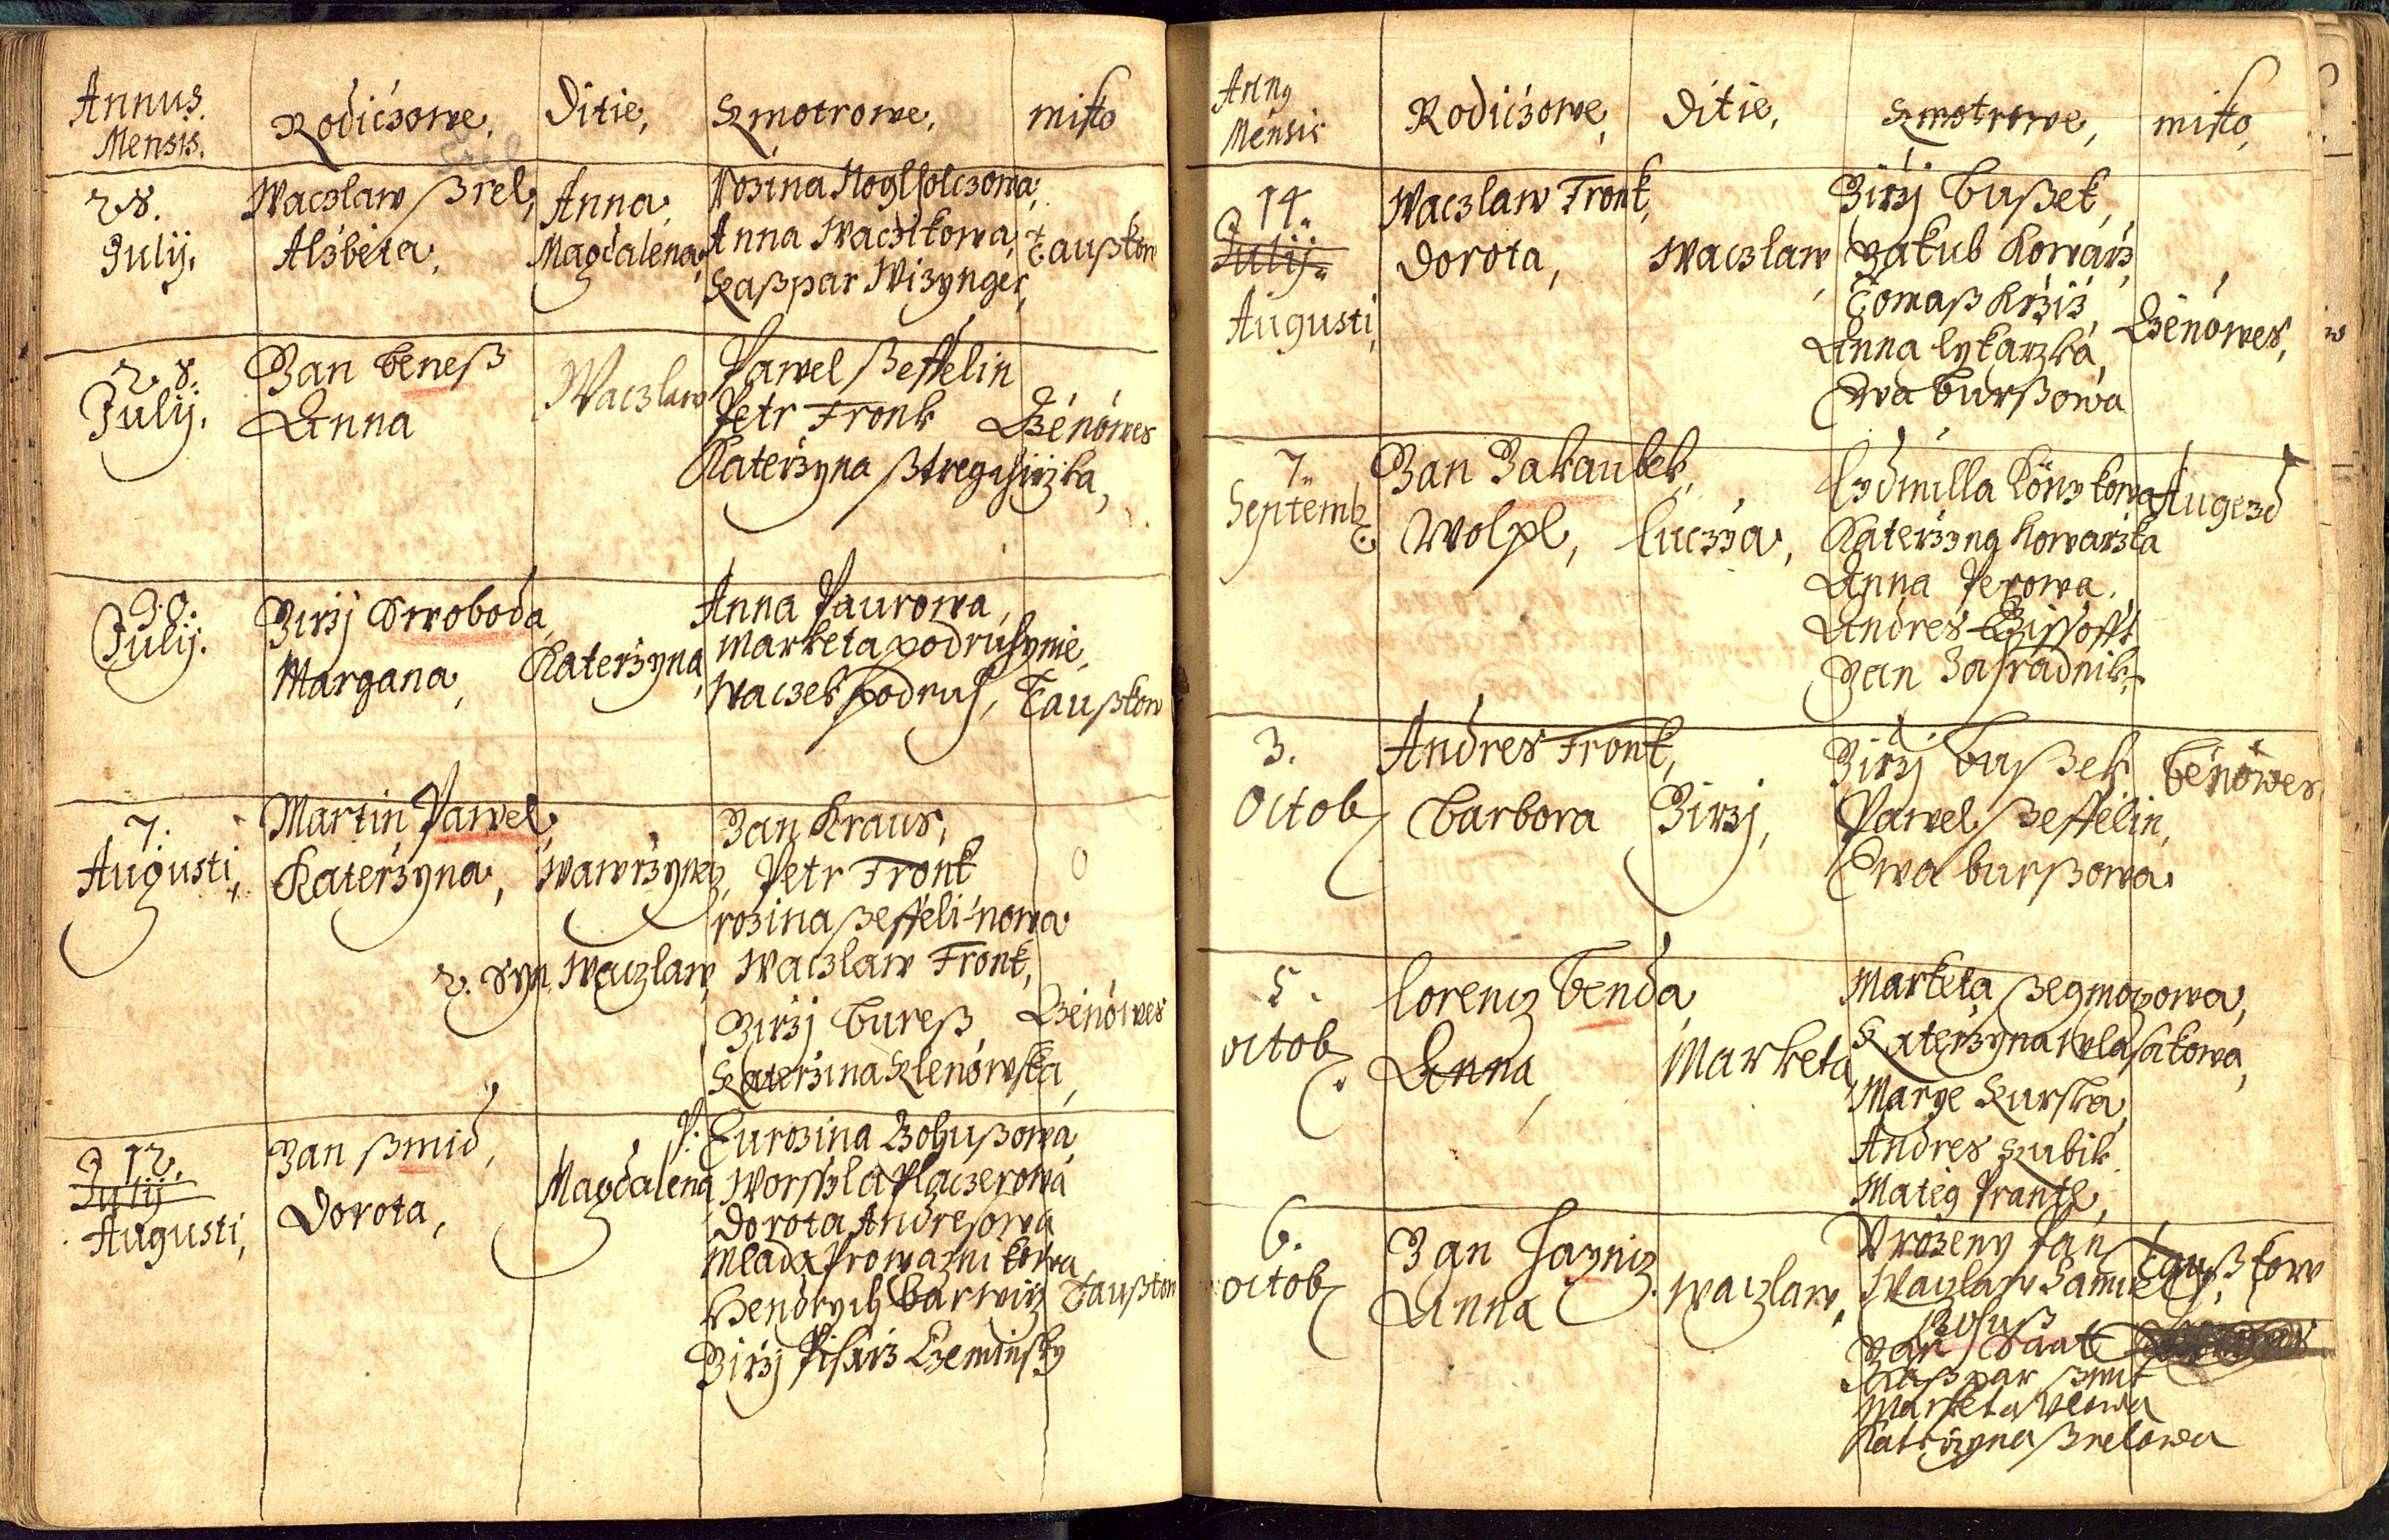 Annus.
Mensis.
Rodiczowe,
Ditie,
Kmotrowe,
misto
28.
Julij.
Waczlaw ßrel,
Alzbeta,
Anna,
Magdalena,
Rozina Noglholczowa,
Anna Waczlkowa,
Kaßpar Wizynger,
Taußkow
28.
Julij.
Jan Beneß
Anna
Waczlaw
Pawel ßeffelin
Petr Fronk
Katerzyna ßtregchirzka,
Bénówes
30.
Julij.
Jirzj Swoboda
Margana,
Katerzyna,
Anna Paurowa,
Marketa podruhynie,
Waczek podruh,
Taußkow
7.
Augusti,
Martin Pawel,
Katerzyna,
Wawrzynecz,
Jan Kraus,
Petr Fronk
rozina ßeffelinowa
2. Syn Waczlaw,
Waczlaw Fronk,
Jirzj Bureß
Katerzina Klenówska,
Bénówes
12.
Julij
Augusti,
Jan ßmid,
Dorota,
Magdalena
P. Eurozina Bohußowa,
Worssyla Placzerowa
Dorota Andresowa
Mlada Prowaznikowa
Hendrych Barwirz
Jirzj Pisarz Zieminsky
Taußkow
Annus
Mensis
Rodiczowe,
Ditie,
Kmotrowe,
misto,
14.
Julij.
Augusti,
Waczlaw Fronk,
Dorota,
Waczlaw,
Jirzj Bußek,
Jakub Kowarz,
Tomaß Krziz,
Anna lykarzka,
Ewa Burßowa
Bénówes,
7.
Septemb
Jan Jakaubek,
Wolpl,
Luczya,
Lydmilla Königkowa
Katerzyna Kowarzka
Anna Pexowa.
Andres Bissofft
Jan Zahradnik,
Augezd
3.
Octob
Andres Fronk,
Barbora
Jirzj,
Jirzj Bußek
Pawel ßeffelin,
Ewa burßowa
Bénówes
5.
octob
Lorencz Benda,
Anna,
Marketa,
Marketa ßegmozowa,
Katerzyna Wlasakowa,
Marye Kurska,
Andres Kubik
Mateg Prantl,
6.
octob
Jan Haynicz
Anna
Waczlaw,
Vrozeny Pan
Waczlaw Samuel
Bohuß
Jan Saak
Kaßpar ßmit
Marketa Vlowa
Katerzyna ßrelowa
Taußkow